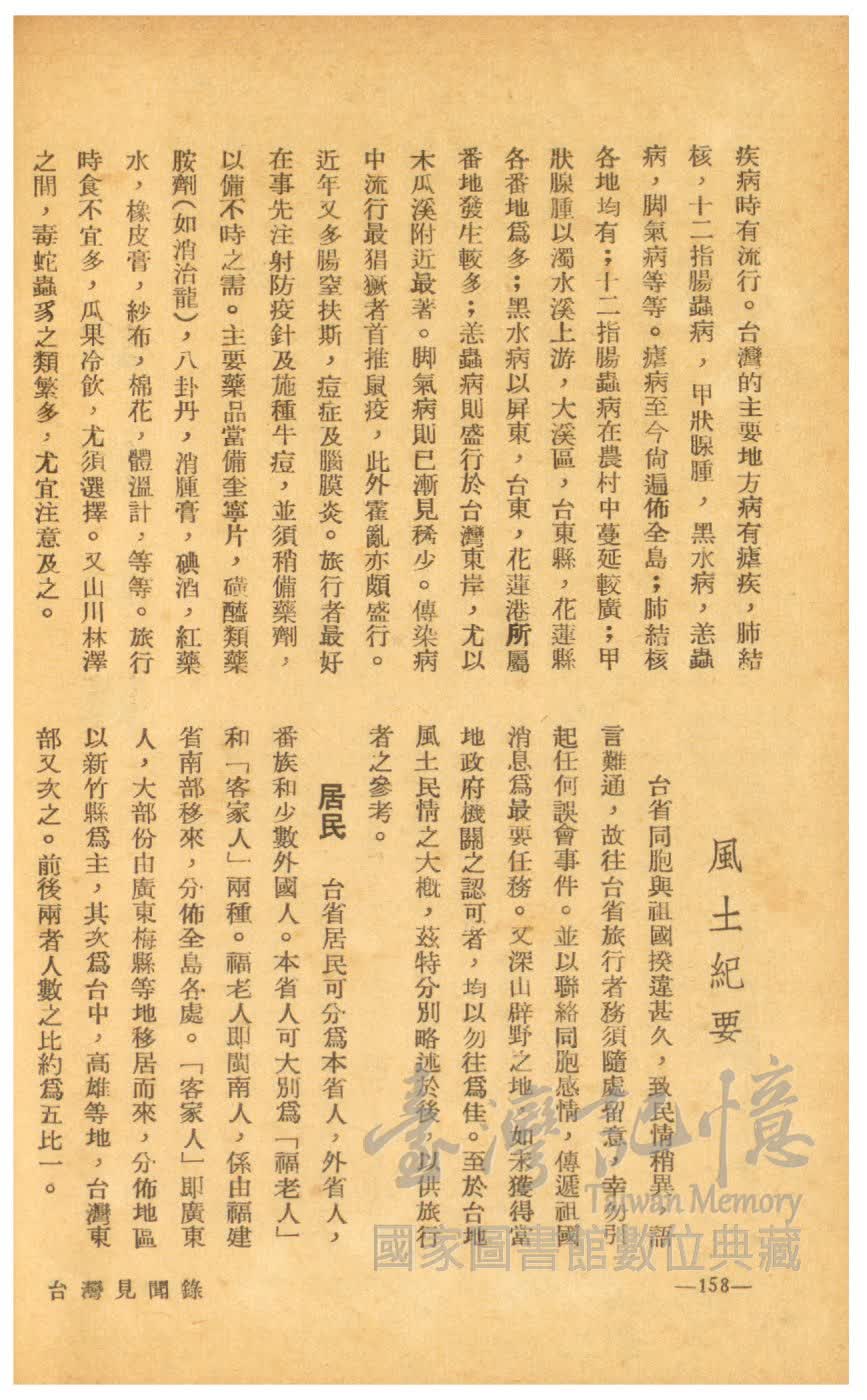 疾病時有流行。台灣的主要地方病有瘧疾，肺結
核，十二指腸蟲病，甲狀腺腫，黑水病，恙蟲
病，脚氣病等等。瘧病至今尙遍佈全島；肺結核
各地均有；十二指腸蟲病在農村中蔓延較廣；甲
狀腺腫以濁水溪上游，大溪區，台東縣，花蓮縣
各番地爲多；黑水病以屏東，台東，花蓮港所屬
番地發生較多；恙蟲病則盛行於台灣東岸，尤以
木瓜溪附近最著。脚氣病則已漸見稀少。傳染病
中流行最猖獗者首推鼠疫，此外霍亂亦頗盛行。
近年又多腸窒扶斯，痘症及腦膜炎。旅行者最好
在事先注射防疫針及施種牛痘，並須稍備藥劑，
以備不時之需。主要藥品當備奎寧片，磺醯類藥
胺劑（如消治龍），八卦丹，消腫膏，碘酒，紅藥
水，橡皮膏，紗布，棉花，體溫計，等等。旅行
時食不宜多，瓜果冷飲，尤須選擇。又山川林澤
之間，毒蛇蟲豸之類繁多，尤宜注意及之。
風土紀要
台省同胞與祖國揆違甚久，致民情稍異，語
言難通，故往台省旅行者務須隨處留意，幸勿引
起任何誤會事件。並以聯絡同胞感情，傳遞祖國
消息爲最要任務。又深山辟野之地，如未獲得當
地政府機關之認可者，均以勿往爲佳。至於台地
風土民情之大槪，茲特分別略述於後，以供旅行
者之參考。
居民　台省居民可分爲本省人，外省人，
番族和少數外國人。本省人可大別爲「福老人」
和「客家人」兩種。福老人即閩南人，係由福建
省南部移來，分佈全島各處。「客家人」即廣東
人，大部份由廣東梅縣等地移居而來，分佈地區
以新竹縣爲主，其次爲台中，高雄等地，台灣東
部又次之。前後兩者人數之比約爲五比一。
台灣見聞錄
—158—
臺灣記憶
Taiwan Memory
國家圖書館數位典藏